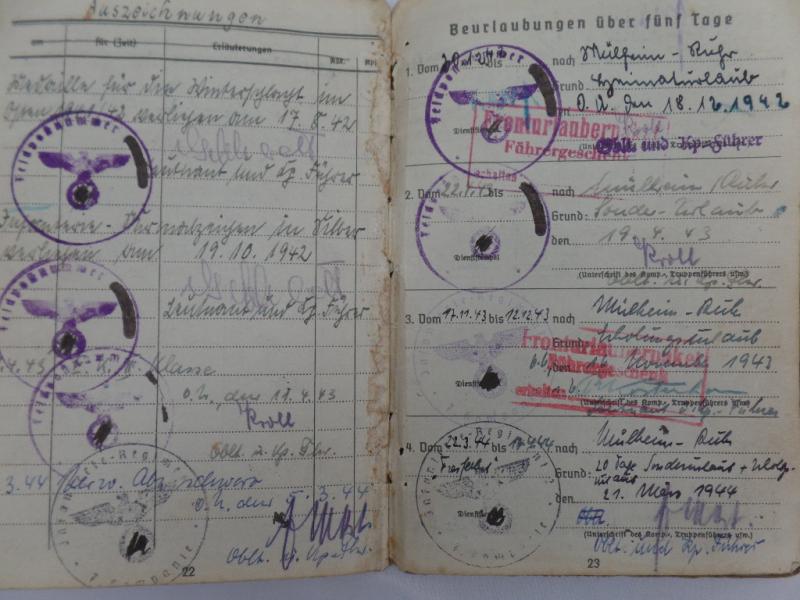 Auszeichnungen
am für (Zeit) Erläuterungen
Medaille für den Winterschlacht im
Osten 1941/42 verliehen am 17.8.42
Feldpostnummer
Leutnant und Kp. Führer
Infanterie-Sturmabzeichen in Silber
verliehen am 19.10.1942
Feldpostnummer
Leutnant und Kp. Führer
.4.43 E. K. II. Klasse
O.U., den 18.4.43
Kroll
Oblt. u. Kp. Fhr.
3.44 Verw. Abz. schwarz
O.U., den 3.44
Oblt. u. Kp. Fhr.
22
Beurlaubungen über fünf Tage
1. Vom 20.12.42 bis nach Mülheim-Ruhr
Heimaturlaub
O.U. den 18.12.1942
Feldpostnummer
Dienststempel
Kroll
Oblt. und Kp.-Führer
2. Vom 22.4.43 bis nach Mülheim/Ruhr
Grund: Sonder-Urlaub
den 19.4.43
Dienststempel
Kroll
(Unterschrift des Komp.-, Truppenführers usw.)
Oblt. u. Kp. Fhr.
3. Vom 17.11.43 bis 12.12.43 nach Mülheim-Ruhr
Grund: Erholungsurlaub
16. November 1943
Führergeschenk
erhalten
(Unterschrift des Komp.-, Truppenführers usw.)
Leutnant u. Kp. Führer
4. Vom 22.3.44 bis 17.4.44 nach Mülheim-Ruhr
Grund: 20 Tage Sonderurlaub + Erholg.
urlaub
den 21. März 1944
Dienststempel
(Unterschrift des Komp.-, Truppenführers usw.)
Oblt. und Kp. Führer
23